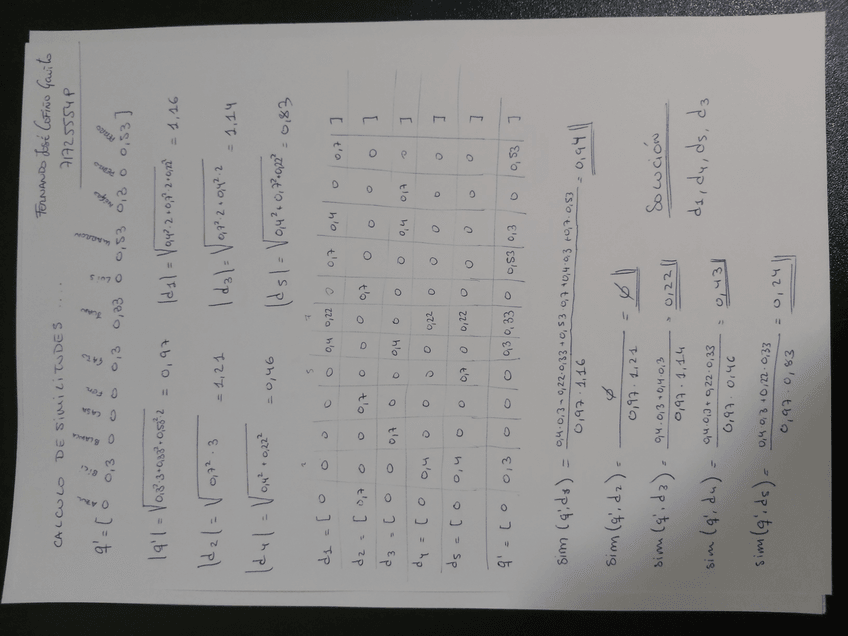 FERNANDO JOSÉ COFIÑO GAVITO
71725554P
CALCULO DE SIMILITUDES ....
q' = [ 0 0,3 0 0 0 0,3 0,33 0 0,53 0,3 0 0,53 ]
|q'| = √0,3²·3+0,33²+0,53²·2 = 0,97 |d1| = √0,4²·2+0,7²·2+0,22² = 1,16
|d2| = √0,7²·3 = 1,21 |d3| = √0,7²·2+0,4²·2 = 1,14
|d4| = √0,4²+0,22² = 0,46 |d5| = √0,4²+0,7²+0,22² = 0,83
d1 = [ 0 0 0 0 0 0,4 0,22 0 0,7 0,4 0 0,7 ]
d2 = [ 0,7 0 0 0,7 0 0 0 0,7 0 0 0 0 ]
d3 = [ 0 0 0,7 0 0 0,4 0 0 0 0,4 0,7 0 ]
d4 = [ 0 0,4 0 0 0 0 0,22 0 0 0 0 0 ]
d5 = [ 0 0,4 0 0 0,7 0 0,22 0 0 0 0 0 ]
q' = [ 0 0,3 0 0 0 0,3 0,33 0 0,53 0,3 0 0,53 ]
sim (q', d1) = 0,4·0,3+0,22·0,33+0,53·0,7+0,4·0,3+0,7·0,53 / 0,97·1,16 = 0,94
sim (q', d2) = ∅ / 0,97·1,21 = ∅
sim (q', d3) = 0,4·0,3+0,4·0,3 / 0,97·1,14 = 0,22
SOLUCIÓN
sim (q', d4) = 0,4·0,3+0,22·0,33 / 0,97·0,46 = 0,43
d1, d4, d5, d3
sim (q', d5) = 0,4·0,3+0,22·0,33 / 0,97·0,83 = 0,24